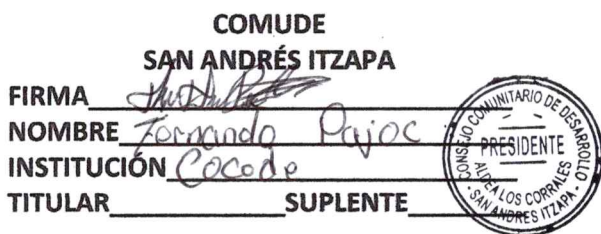 COMUDE
SAN ANDRÉS ITZAPA
FIRMA
NOMBRE Fernando Pajoc
INSTITUCIÓN Cocode
TITULAR SUPLENTE
CONSEJO COMUNITARIO DE DESARROLLO
PRESIDENTE
ALDEA LOS CORRALES
- SAN ANDRES ITZAPA -